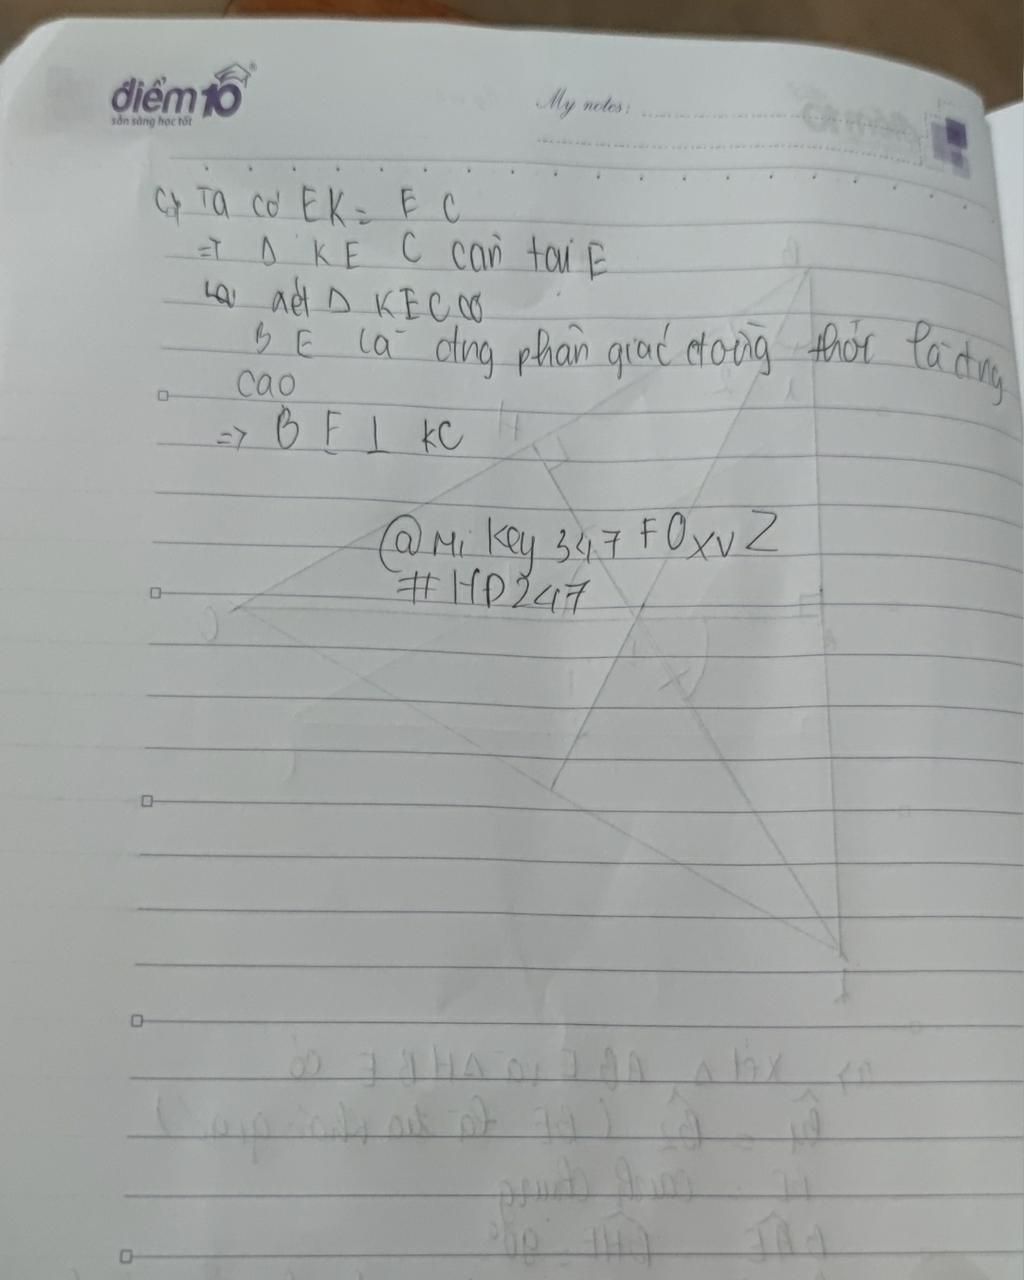 điểm10
sẵn sàng học tốt
My notes:
c, Ta có EK = EC
=> Δ KEC cân tại E
xét Δ KEC có
BE là đng phân giác đồng thời là đng
cao
=> BE ⊥ KC
@Mi Key 347 FOXVZ
#HD247